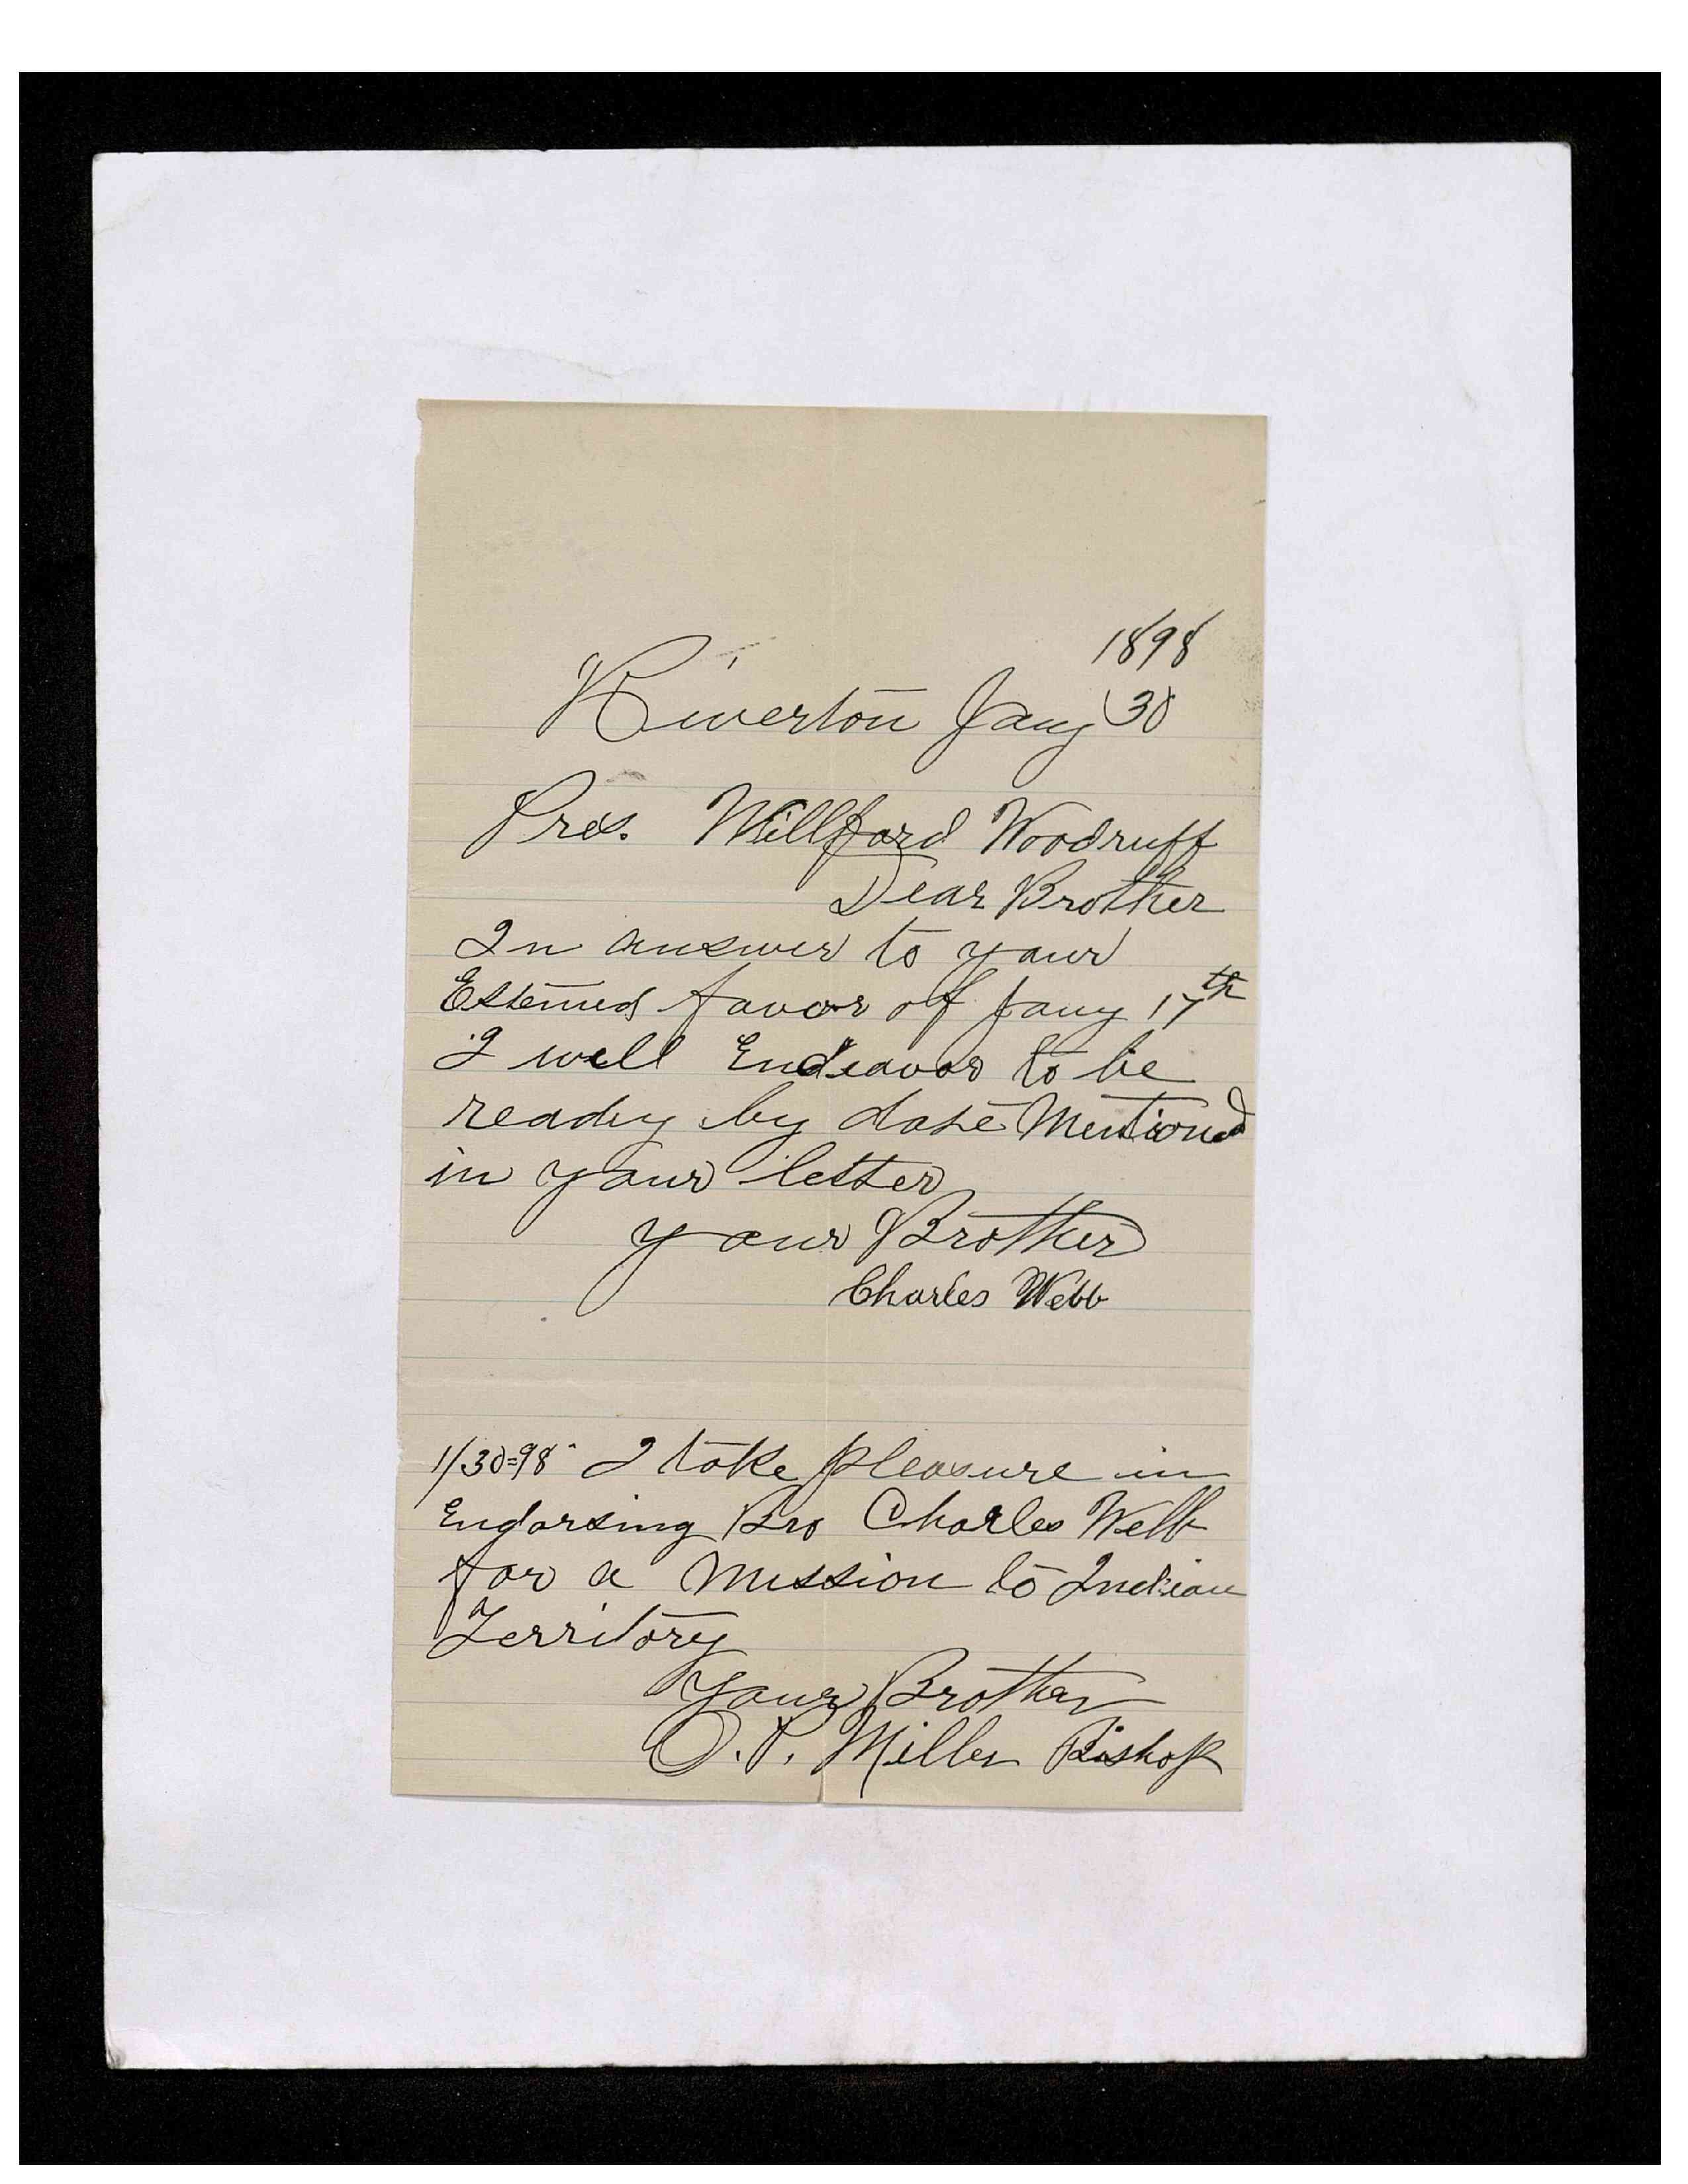 1898
Riverton Jany 30
Pres. Willford Woodruff
Dear Brother
In answer to your
Estemed favor of Jany 17th
I will Endeavor to be
ready by date Mentioned
in your letter
your Brother
Charles Webb
1/30=98 I take pleasure in
Endorsing Bro Charles Webb
for a Mission to Indian
Territory
Your Brother
O.P. Miller Bishop